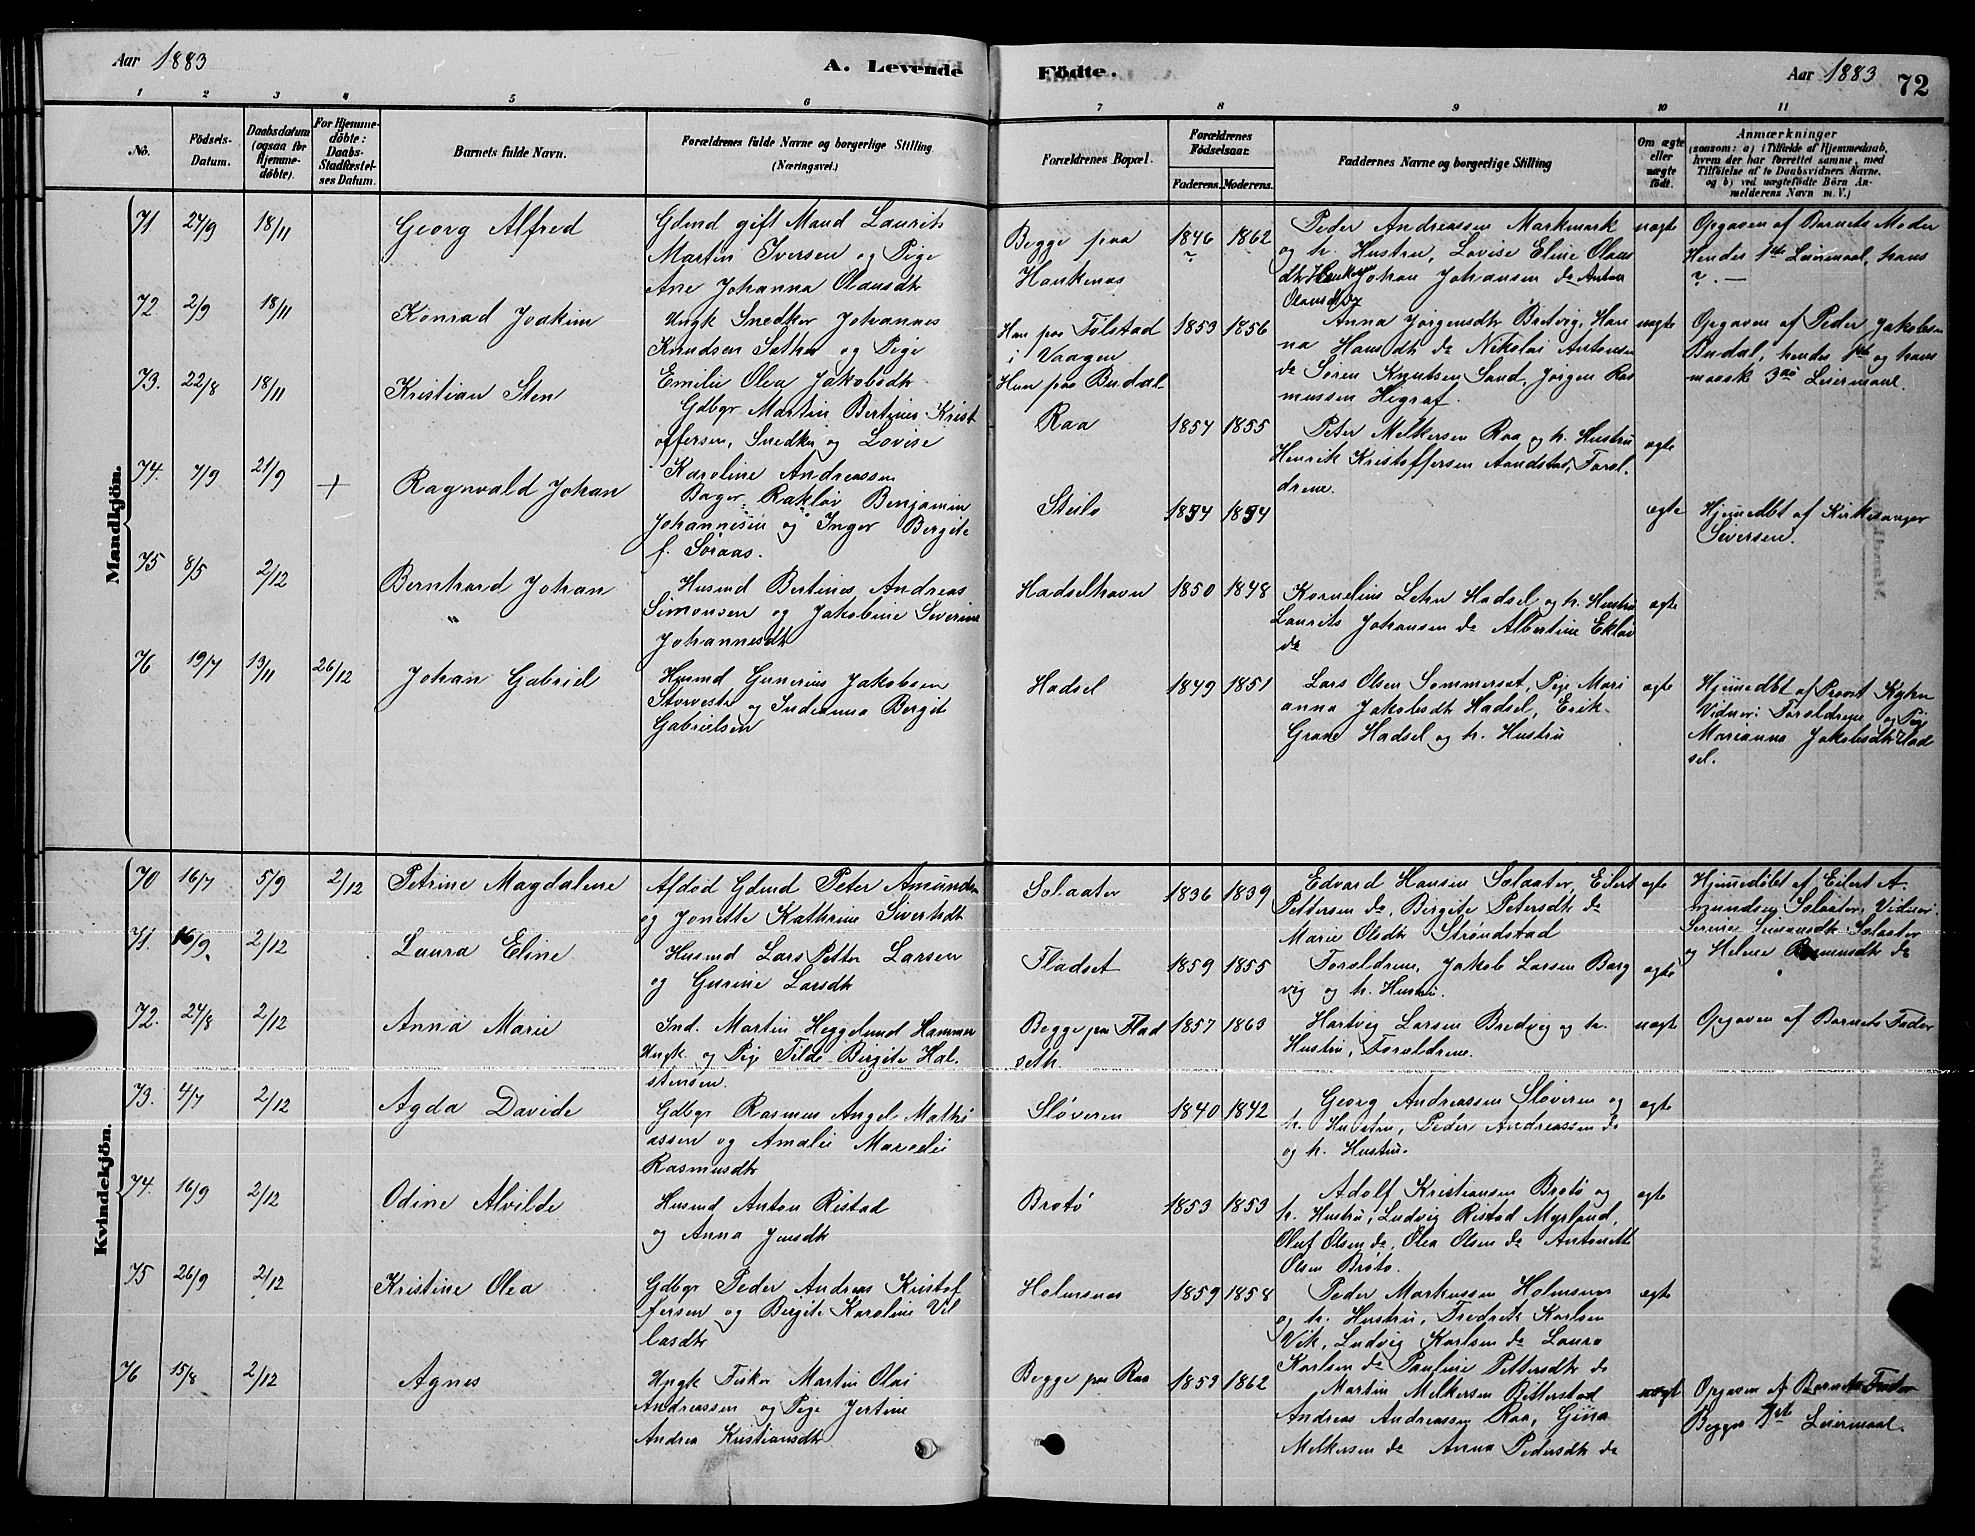 Aar 1883
A. Levende
Födte.
Aar 1883
72
1 2 3 4 5 6 7 8 9 10 11
No.
Födsels-
Datum.
Daabsdatum
(ogsaa for
Hjemme-
döbte).
For Hjemme-
döbte:
Daabs-
Stadfæstel-
ses Datum.
Barnets fulde Navn.
Forældrenes fulde Navne og borgerlige Stilling
(Næringsvei.)
Forældrenes Bopæl.
Forældrenes
Födselsaar.
Faderens. Moderens.
Faddernes Navne og borgerlige Stilling
Om ægte
eller
uægte
födt.
Anmærkninger
(saasom: a) i Tilfælde af Hjemmedaab,
hvem der har forrettet samme, med
Tilföielse af to Daabsvidners Navne,
og b) ved uægtefödte Börn An-
melderens Navn m. V.)
Mandkjön.
71 24/9 18/11 Georg Alfred
Gdmd gift Mand Laurits
Martin Iversen og Pige
Ane Johanna Olausdtr
Begge paa
Haukenæs
1846 1862
Peder Andreassen Markmark
og h. Hustru, Lovise Eline Olaus
dtr Haukenæs Johan Johansen do Anton
Olausdtr do
uægte
Opgaven af Barnets Moder
Hendes 1ste Leiermaal, hans
? . —
72 2/9 18/11 Konrad Joakim
Ungk Snedker Johannes
Knudsen Sæther og Pige
Emilie Olea Jakobsdtr
Han paa Folstad
i Vaagen
Hun paa Budal
1853 1856
Anna Jörgensdtr Bretvig, Han
na Hansdtr do Nikolai Antonsen
do Sören Knutsen Sand, Jörgen Ras
mussen Hegraf.
uægte
Opgaven af Peder Jakobsen
Budal, hendes 1ste og hans
maask 3die Leiermaal.
73. 22/8 18/11 Kristian Sten
Gdbgr Martin Bertines Krist
offersen, Snedker og Lovise
Karoline Andreassen
Raa
1854 1855
Peter Melkersen Raa og h. Hustru
Henrik Kristoffersen Aandstad, Foræl-
drene.
ægte
74. 7/9 21/9 + Ragnvald Johan
Bager Rakløv Benjamin
Johannesen og Inger Bergite
f. Soraas.
Steilo
1854 1854
ægte
Hjemmedöbt af Kirkesanger
Siversen.
75 8/5 2/12 Bernhard Johan
"
Husmd Bertines Andreas
Simonsen og Jakobine Severine
Johannesdtr
Hadselhavn
1850 1848
Kornelius Lehn Hadsel og h. Hustru
Laurits Johansen do Albertine Eklöv
do
ægte
76 19/7 13/11 26/12 Johan Gabriel
Husmd Gunerius Jakobsen
Storveste og Indianna Bergit
Gabrielsen
Hadsel
1849 1851
Lars Olsen Sommerset, Pige Mari
anna Jakobsdtr Hadsel, Erik
Grane Hadsel og h. Hustru
ægte
Hjemmedöbt af Provst Kyhn
Vidner: Forældrene og Pige
Marianna Jakobsdtr Had
sel.
Kvindekjön.
70 16/7 5/9 2/12 Petrine Magdalene
Afdød Gdmd Peter Amundsen
og Jonette Kathrine Sivertsdtr
Solaater
1836 1839
Edvard Hansen Solaater, Eilert
Pettersen do, Birgite Petersdtr do
Marie Olsdtr Strøndstad
ægte
Hjemmedöbt af Eilert A-
mundsen Solaater, Vidner:
Solaater
og Helene do
71. 16/9. 2/12 Laura Eline
Husmd Lars Petter Larsen
og Gurine Larsdtr
Fladset
1859 1855
Forældrene, Jakob Larsen Borg
vig og h. Hustru.
ægte
72. 24/8 2/12 Anna Marie
Ind. Martin Heggelund Hammer
Ungk. og Pige Tilde Birgite Hal-
stensen.
Begge paa Flad
seth
1857 1863
Hartvig Larsen Bredvig og h.
Hustru, Forældrene.
uægte
Opgaven af Barnets Fader
73. 4/7 2/12 Agda Davide
Gdbgr Rasmus Angel Mathi
assen og Amalie Marselie
Rasmusdtr
Sløveren
1840 1842
Georg Andreassen Sløveren og
h. Hustru, Peder Andreassen do
og h. Hustru.
ægte
74. 16/9 2/12 Odine Alvilde
Husmd Anton Ristad
og Anna Jensdtr
Brotö
1853 1853
Adolf Kristiansen Brotö og
h. Hustru, Ludvig Ristad Myrland,
Oluf Olsen do, Olea Olsen do Antonette
Olsen Brötö.
ægte
75 26/9 2/12 Kristine Olea
Gdbgr Peder Andreas Kristof
fersen og Bergite Karoline Vil
lasdtr
Holmsnæs
1859 1858
Peder Markussen Holmsnæs
og h. Hustru, Fredrik Karlsen
Vik, Ludvig Karlsen do Laura
Karlsen do Pauline Pettersdtr do
ægte
76 15/8 2/12 Agnes
Ungk Fisker Martin Olai
Andreassen og Pige Jertine
Andrea Kristiansdtr
Begge paa Raa
1859 1862
Martin Melkersen Bitterstad
Andreas Andreassen Raa, Gina
Melkersen do Anna Pedersdtr do
uægt
Opgaven af Barnets Fader
Begges 1ste Leiermaal.